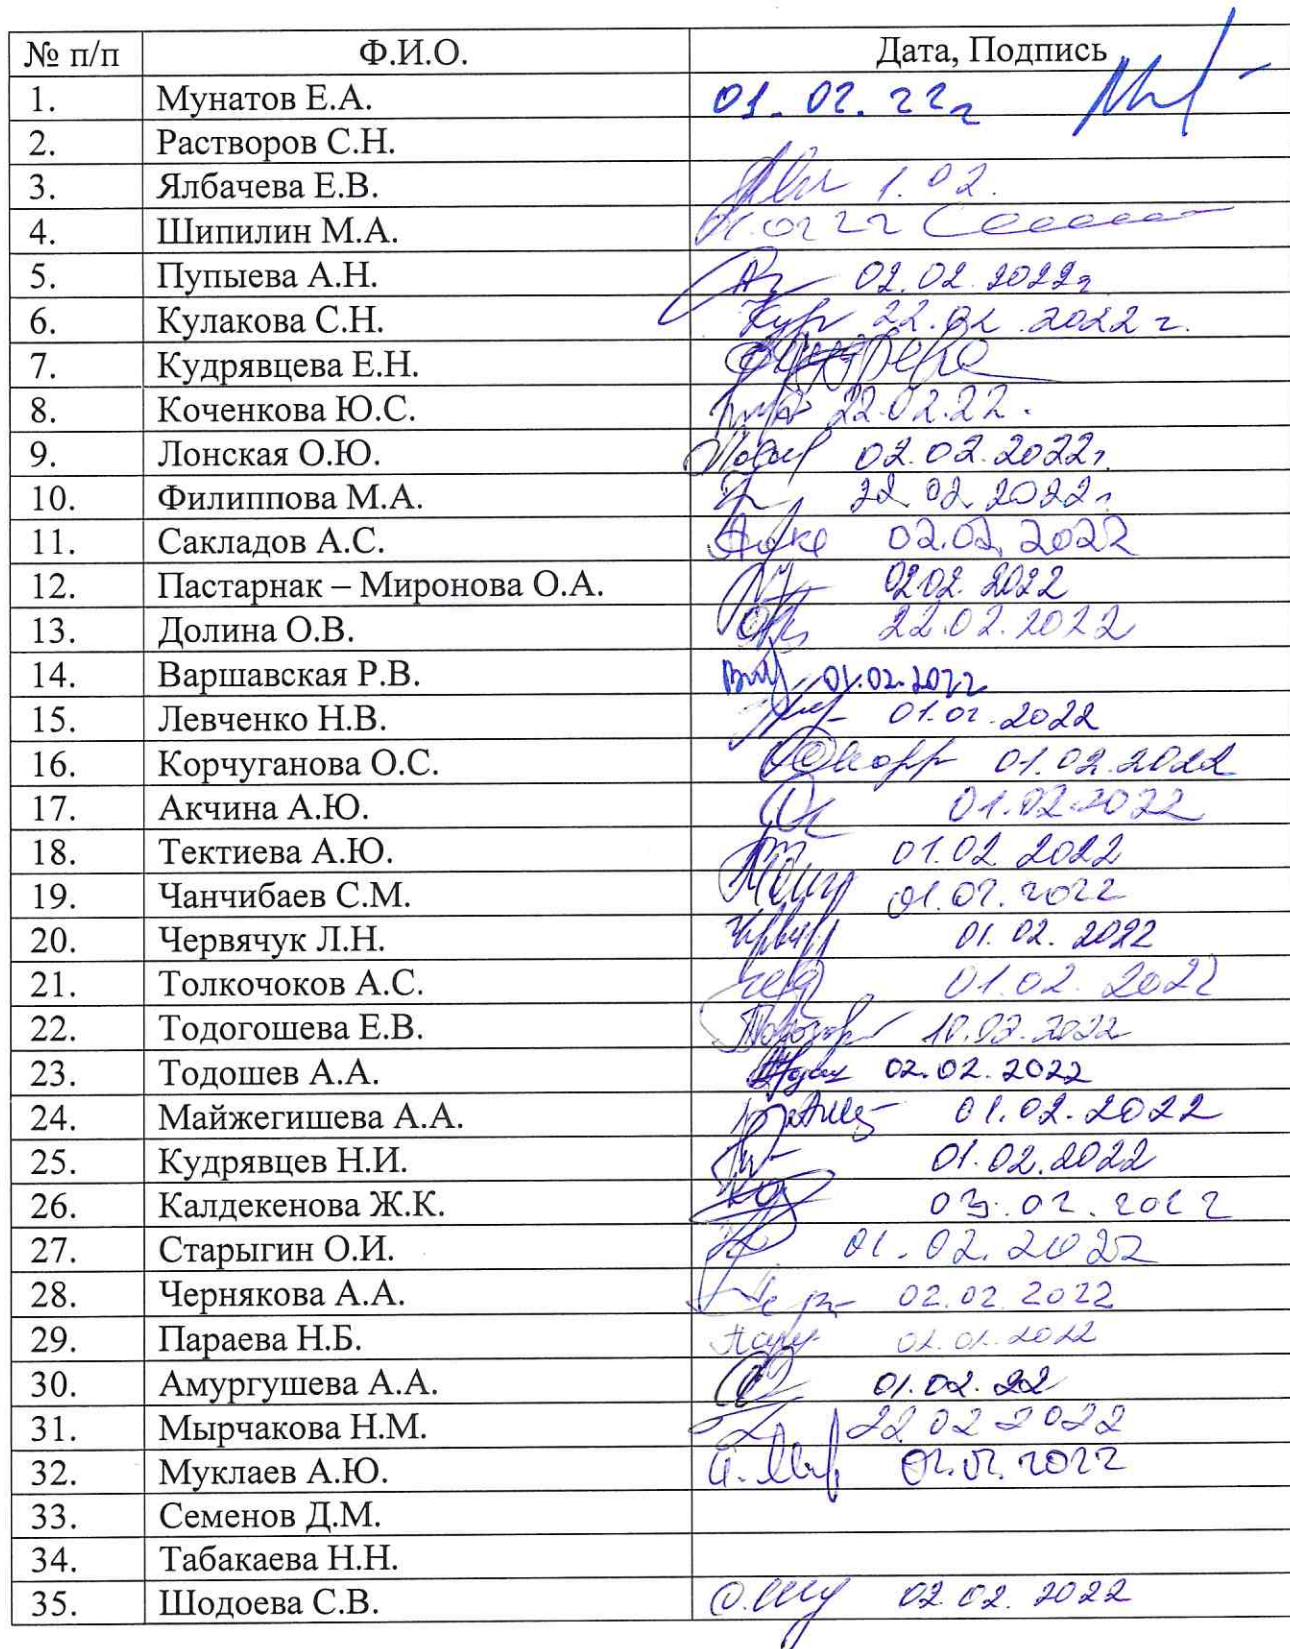 № п/п Ф.И.О. Дата, Подпись
1. Мунатов Е.А. 01.02.22г
2. Растворов С.Н.
3. Ялбачева Е.В. 1.02.
4. Шипилин М.А.
5. Пупыева А.Н. 02.02.2022г
6. Кулакова С.Н. 22.02.2022г.
7. Кудрявцева Е.Н.
8. Коченкова Ю.С. 22.02.22.
9. Лонская О.Ю. 02.02.2022г.
10. Филиппова М.А. 22.02.2022г
11. Сакладов А.С. 02.02.2022
12. Пастарнак – Миронова О.А. 02.02.2022
13. Долина О.В. 22.02.2022
14. Варшавская Р.В. 01.02.2022
15. Левченко Н.В. 01.02.2022
16. Корчуганова О.С. 01.02.2022
17. Акчина А.Ю. 01.02.2022
18. Тектиева А.Ю. 01.02.2022
19. Чанчибаев С.М. 01.02.2022
20. Червячук Л.Н. 01.02.2022
21. Толкочоков А.С. 01.02.2022
22. Тодогошева Е.В. 10.02.2022
23. Тодошев А.А. 02.02.2022
24. Майжегишева А.А. 01.02.2022
25. Кудрявцев Н.И. 01.02.2022
26. Калдекенова Ж.К. 03.02.2022
27. Старыгин О.И. 01.02.2022
28. Чернякова А.А. 02.02.2022
29. Параева Н.Б.
30. Амургушева А.А. 01.02.22
31. Мырчакова Н.М. 22.02.2022
32. Муклаев А.Ю. 02.02.2022
33. Семенов Д.М.
34. Табакаева Н.Н.
35. Шодоева С.В. 02.02.2022